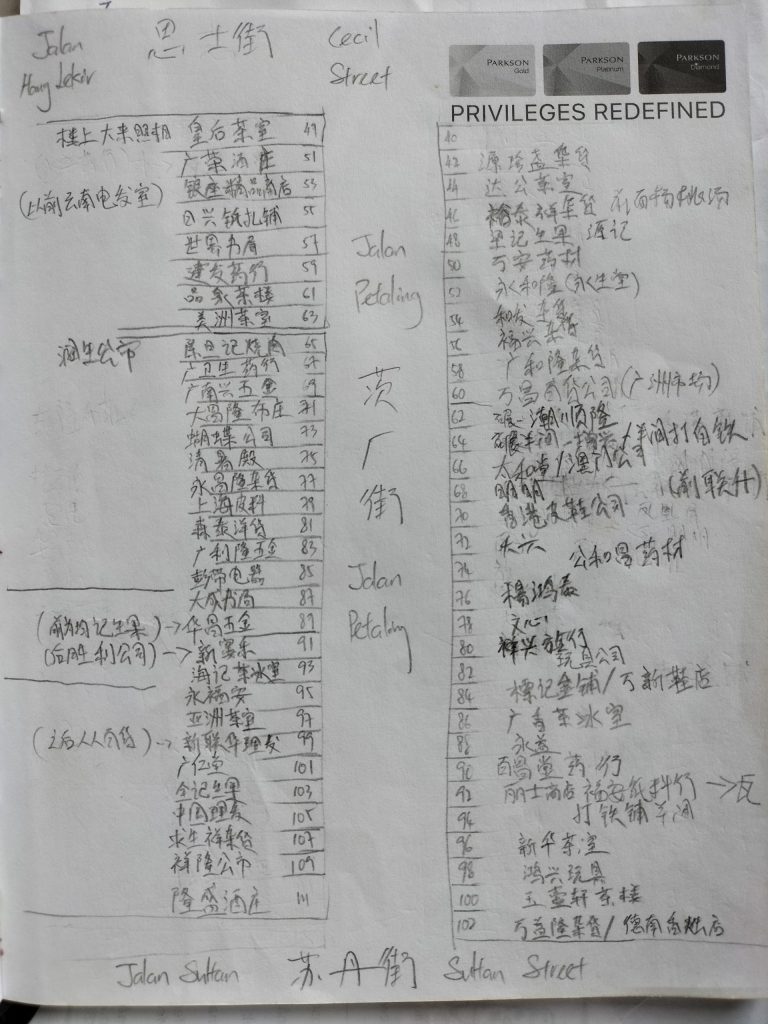 Jalan Hang Lekir 思士街 Cecil Street
PARKSON Gold
PARKSON Platinum
PARKSON Diamond
PRIVILEGES REDEFINED
楼上大来照相 皇后茶室 49
广荣酒庄 51
(以前云南电发室) 银座精品商店 53
兴纸扎铺 55
世界书局 57
建发药行 59
品泉茶楼 61
美洲茶室 63
润生公市 记烧肉 65
广卫生药行 67
广南兴五金 69
大昌隆布庄 71
蝴蝶公司 73
清暑殿 75
永昌隆杂货 77
上海皮料 79
森泰洋货 81
广利隆五金 83
彭带电器 85
大成书局 87
(前均记生果) → 华昌五金 89
(后胜利公司) → 新宴乐 91
海记茶冰室 93
永福安 95
亚洲茶室 97
(之后人人百货) → 新联华理发 99
广仁堂 101
全记生果 103
中国理发 105
永生祥杂货 107
祥隆公市 109
隆盛酒庄 111
Jalan Petaling
茨厂街
Jalan Petaling
40
42 源隆盏杂货
44 达公茶室
46 裕泰祥杂货
48 坚记生果 酒记
50 万安药材
52 永和隆(永生堂)
54 和发杂货
56 福兴杂货
58 广和隆杂货
60 万昌百货公司(广洲市场)
62 潮顺隆
64 打白铁
66 太和堂/澳门公司
68 明明 (前联升)
70 香港皮鞋公司
72 天兴
74 公和昌药材
76 杨鸿泰
78 文心
80 祥兴旅行
82 玩具公司
84 标记金铺/万新鞋店
86 广香茶冰室
88 永益
90 百昌堂药行
92 丽士商店 福安纸料行 → 瓦
94 打铁铺羊润
96 新华茶室
98 鸿兴玩具
100 玉壶轩茶楼
102 万益隆杂货/德南香烛店
Jalan Sultan 苏丹街 Sultan Street